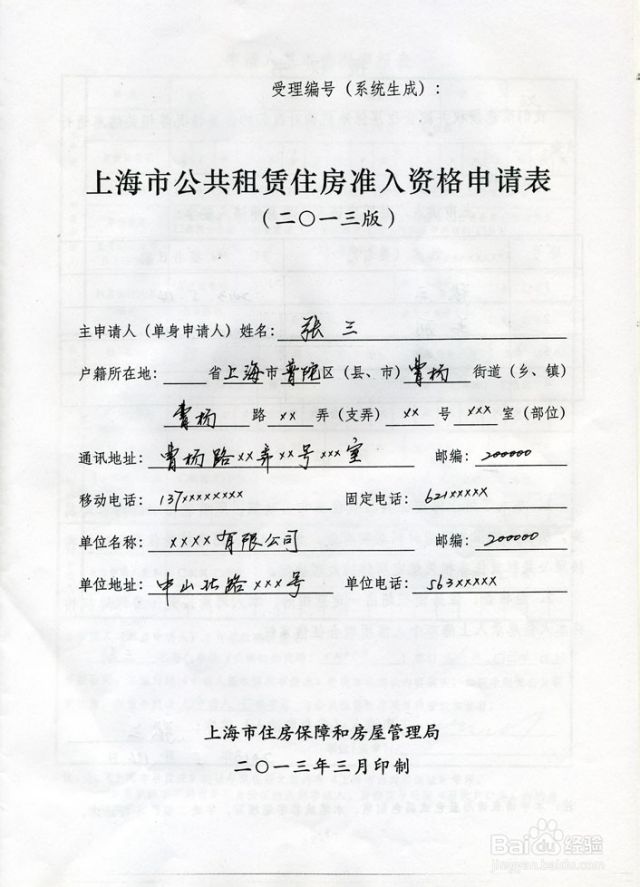 受理编号（系统生成）：
上海市公共租赁住房准入资格申请表
（二〇一三版）
主申请人（单身申请人）姓名：张三
户籍所在地：____省上海市普陀区（县、市）曹杨街道（乡、镇）
曹杨路××弄（支弄）××号×××室（部位）
通讯地址：曹杨路××弄××号×××室 邮编：200000
移动电话：137×××××××× 固定电话：621×××××
单位名称：××××有限公司 邮编：200000
单位地址：中山北路×××号 单位电话：563×××××
上海市住房保障和房屋管理局
二〇一三年三月印制
Baidu经验
jingyan.baidu.com